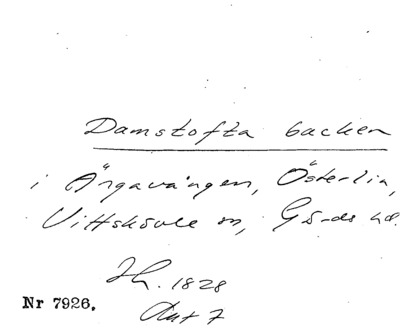 Damstofta backen
i Ängavången, Österlia,
Vittskövle sn, Gärds hd.
Lh. 1828
Akt 7
Nr 7926.